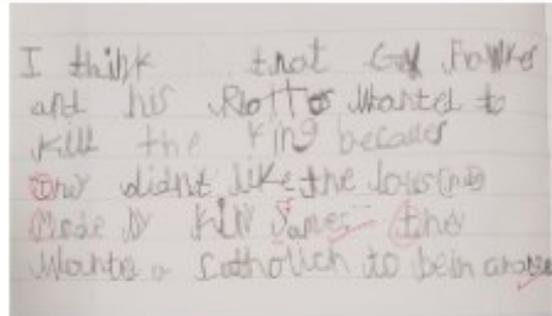 I think that Guy Fawkes
and his Plotters wanted to
kill the King because
they didnt like the
Made by King James they
wante a Catholich to be in charge